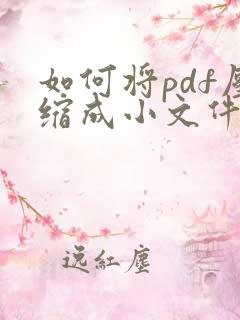 如何将pdf压
缩成小文件
逸红尘